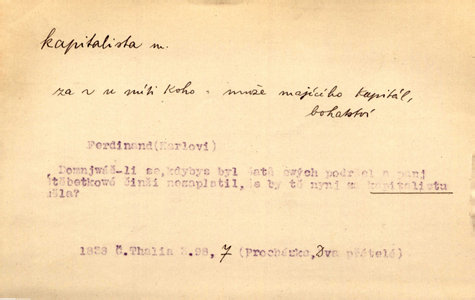 kapitalista m.
za v u míti koho - muže majícího kapitál,
bohatství
Ferdinand(Karlovi)
Domnjwáš-li se,kdybys byl šatů swých podržel a panj
štěbetkowé činži nezaplatil, by tě nynj za kapitalistu
měla?
1838 Č.Thalia 3.98, 7 (Procházka, Dva přátelé)